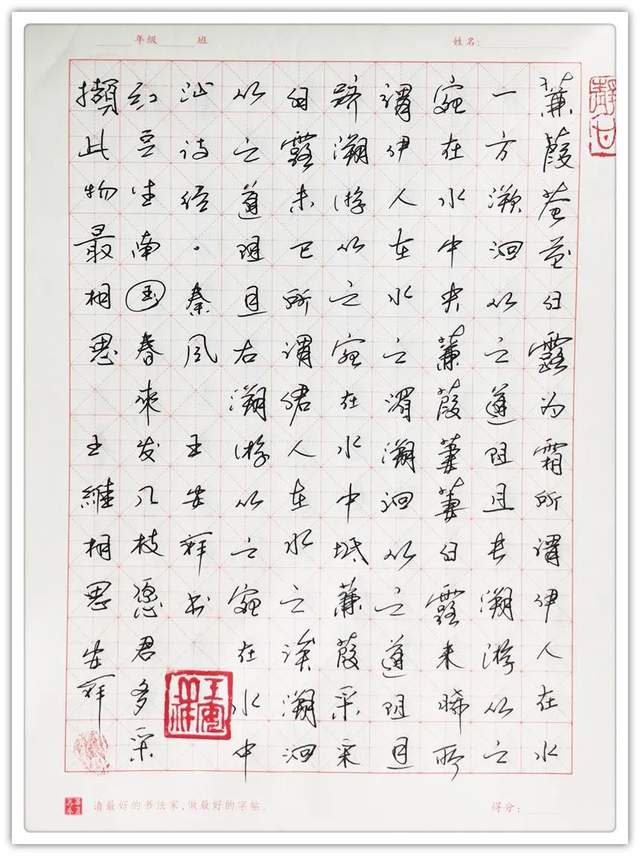 年级 班 姓名:
蒹葭苍苍白露为霜所谓伊人在水
一方溯洄从之道阻且长溯游从之
宛在水中央蒹葭萋萋白露未晞所
谓伊人在水之湄溯洄从之道阻且
跻溯游从之宛在水中坻蒹葭采采
白露未已所谓伊人在水之涘溯洄
从之道阻且右溯游从之宛在水中
沚诗经·秦风 王安祥书
红豆生南国春来发几枝愿君多采
撷此物最相思 王维相思安祥
请最好的书法家,做最好的字帖. 得分: